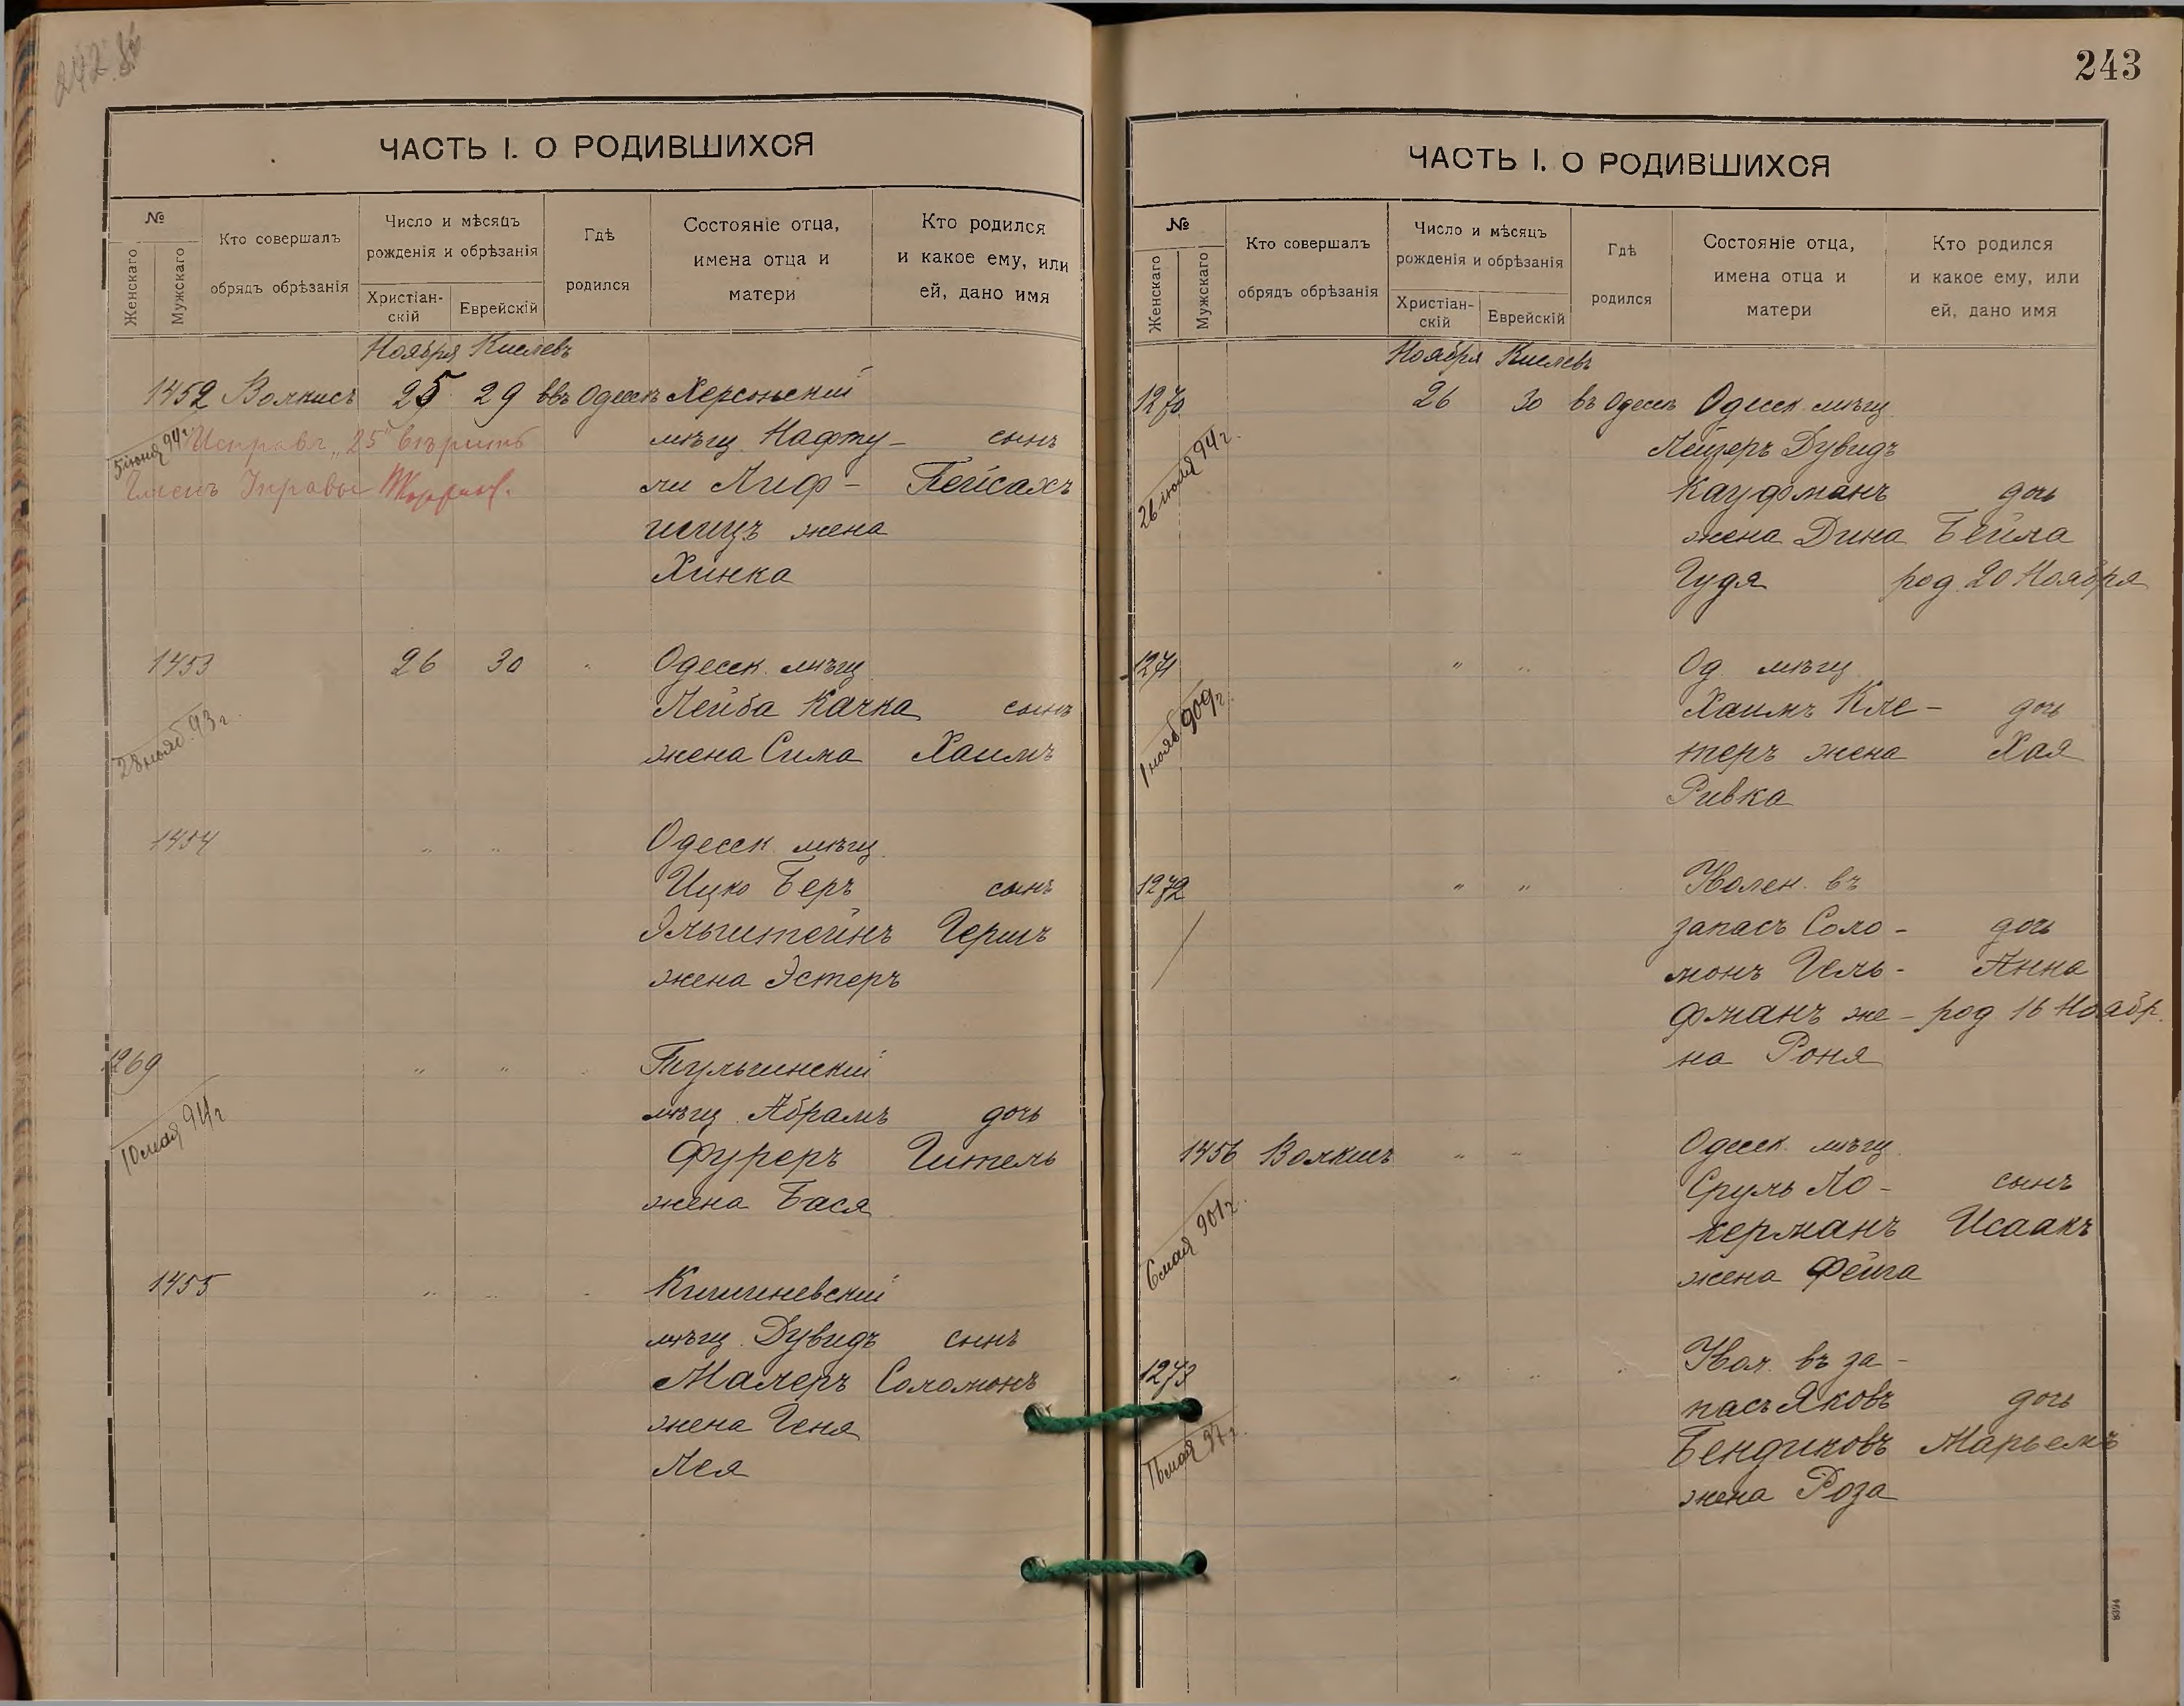 242 об
ЧАСТЬ I. О РОДИВШИХСЯ
№
Женскаго
Мужскаго
Кто совершалъ
обрядъ обрѣзанія
Число и мѣсяцъ
рожденія и обрѣзанія
Христіан-
скій
Еврейскій
Гдѣ
родился
Состояніе отца,
имена отца и
матери
Кто родился
и какое ему, или
ей, дано имя
Ноября Кислевъ
1452 Волкисъ 25 29 въ Одессѣ Херсонскій
5 іюня 94 г. Исправл. "25" вѣрить мѣщ. Нафту- сынъ
Членъ Управы ли Лиф- Пейсахъ
шицъ жена
Хинка
1453 26 30 " Одесск. мѣщ.
28 нояб. 93 г. Лейба Качка сынъ
жена Сима Хаимъ
1454 " " Одесск. мѣщ.
Ицко Беръ сынъ
Эльштейнъ Гершъ
жена Эстеръ
1269 " " Тульчинскій
10 мая 94 г. мѣщ. Абрамъ дочь
Фуреръ Гитель
жена Бася
1455 " " " Кишиневскій
мѣщ. Дувидъ сынъ
Малеръ Соломонъ
жена Геня
Лея
243
ЧАСТЬ I. О РОДИВШИХСЯ
№
Женскаго
Мужскаго
Кто совершалъ
обрядъ обрѣзанія
Число и мѣсяцъ
рожденія и обрѣзанія
Христіан-
скій
Еврейскій
Гдѣ
родился
Состояніе отца,
имена отца и
матери
Кто родился
и какое ему, или
ей, дано имя
Ноября Кислевъ
1270 26 30 въ Одессѣ Одесск. мѣщ.
26 іюля 94 г. Лейзеръ Дувидъ
Кауфманъ дочь
жена Дина Бейла
Гудя род. 20 Ноября
1271 " " Од. мѣщ.
1 нояб. 909 г. Хаимъ Кле- дочь
перъ жена Хая
Ривка
1272 " " Уволен. въ
запасъ Соло- дочь
монъ Гель- Анна
фманъ же- род. 16 Ноябр.
на Роня
1456 Волкисъ " " Одесск. мѣщ.
6 мая 901 г. Сруль Ло- сынъ
керманъ Исаакъ
жена Фейга
1273 " " " Увол. въ за-
16 мая 97 г. пасъ Яковъ дочь
Бендиковъ Марьемъ
жена Роза
8394